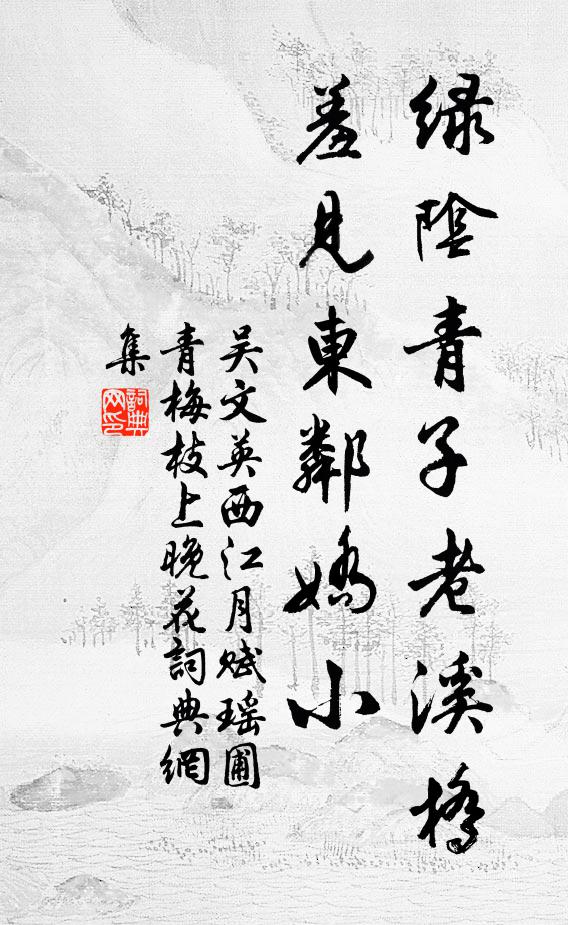 綠陰青子老溪橋
羞見東鄰嬌小
吴文英西江月賦瑶圃
青梅枝上晚花詞典網
集
詞典网印